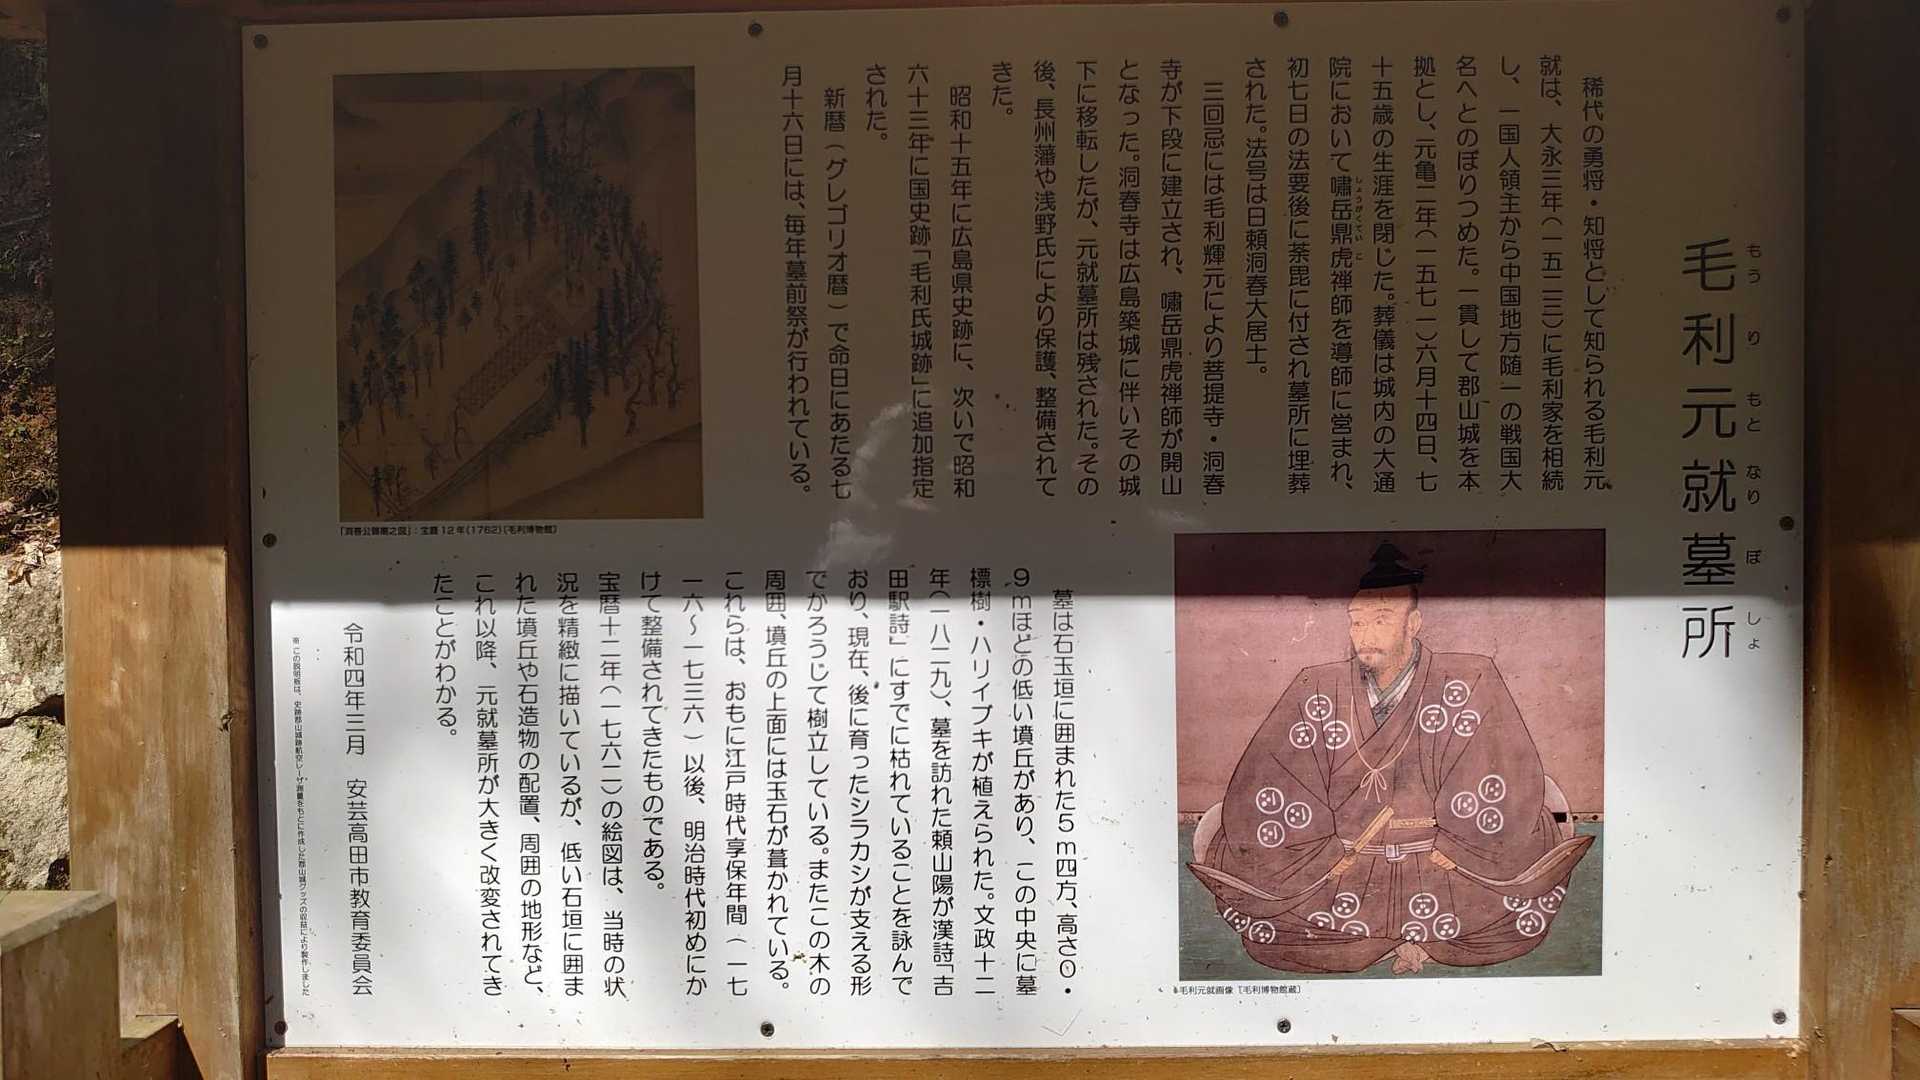 毛利元就墓所
もうりもとなりぼしょ
稀代の勇将・知将として知られる毛利元
就は、大永三年（一五二三）に毛利家を相続
し、一国人領主から中国地方随一の戦国大
名へとのぼりつめた。一貫して郡山城を本
拠とし、元亀二年（一五七一）六月十四日、七
十五歳の生涯を閉じた。葬儀は城内の大通
院において嘯岳鼎虎禅師を導師に営まれ、
しょうがくていこ
初七日の法要後に荼毘に付され墓所に埋葬
された。法号は日頼洞春大居士。
三回忌には毛利輝元により菩提寺・洞春
寺が下段に建立され、嘯岳鼎虎禅師が開山
となった。洞春寺は広島築城に伴いその城
下に移転したが、元就墓所は残された。その
後、長州藩や浅野氏により保護、整備されて
きた。
昭和十五年に広島県史跡に、次いで昭和
六十三年に国史跡「毛利氏城跡」に追加指定
された。
新暦（グレゴリオ暦）で命日にあたる七
月十六日には、毎年墓前祭が行われている。
「洞春公御廟之図」：宝暦12年(1762)〔毛利博物館〕
毛利元就画像〔毛利博物館蔵〕
墓は石玉垣に囲まれた5m四方、高さ0・
9mほどの低い墳丘があり、この中央に墓
標樹・ハリイブキが植えられた。文政十二
年（一八二九）、墓を訪れた頼山陽が漢詩「吉
田駅詩」にすでに枯れていることを詠んで
おり、現在、後に育ったシラカシが支える形
でかろうじて樹立している。またこの木の
周囲、墳丘の上面には玉石が葺かれている。
これらは、おもに江戸時代享保年間（一七
一六〜一七三六）以後、明治時代初めにか
けて整備されてきたものである。
宝暦十二年（一七六二）の絵図は、当時の状
況を精緻に描いているが、低い石垣に囲ま
れた墳丘や石造物の配置、周囲の地形など、
これ以降、元就墓所が大きく改変されてき
たことがわかる。
令和四年三月　安芸高田市教育委員会
※この説明板は、史跡郡山城跡航空レーザ測量をもとに作成した郡山城グッズの収益により製作しました